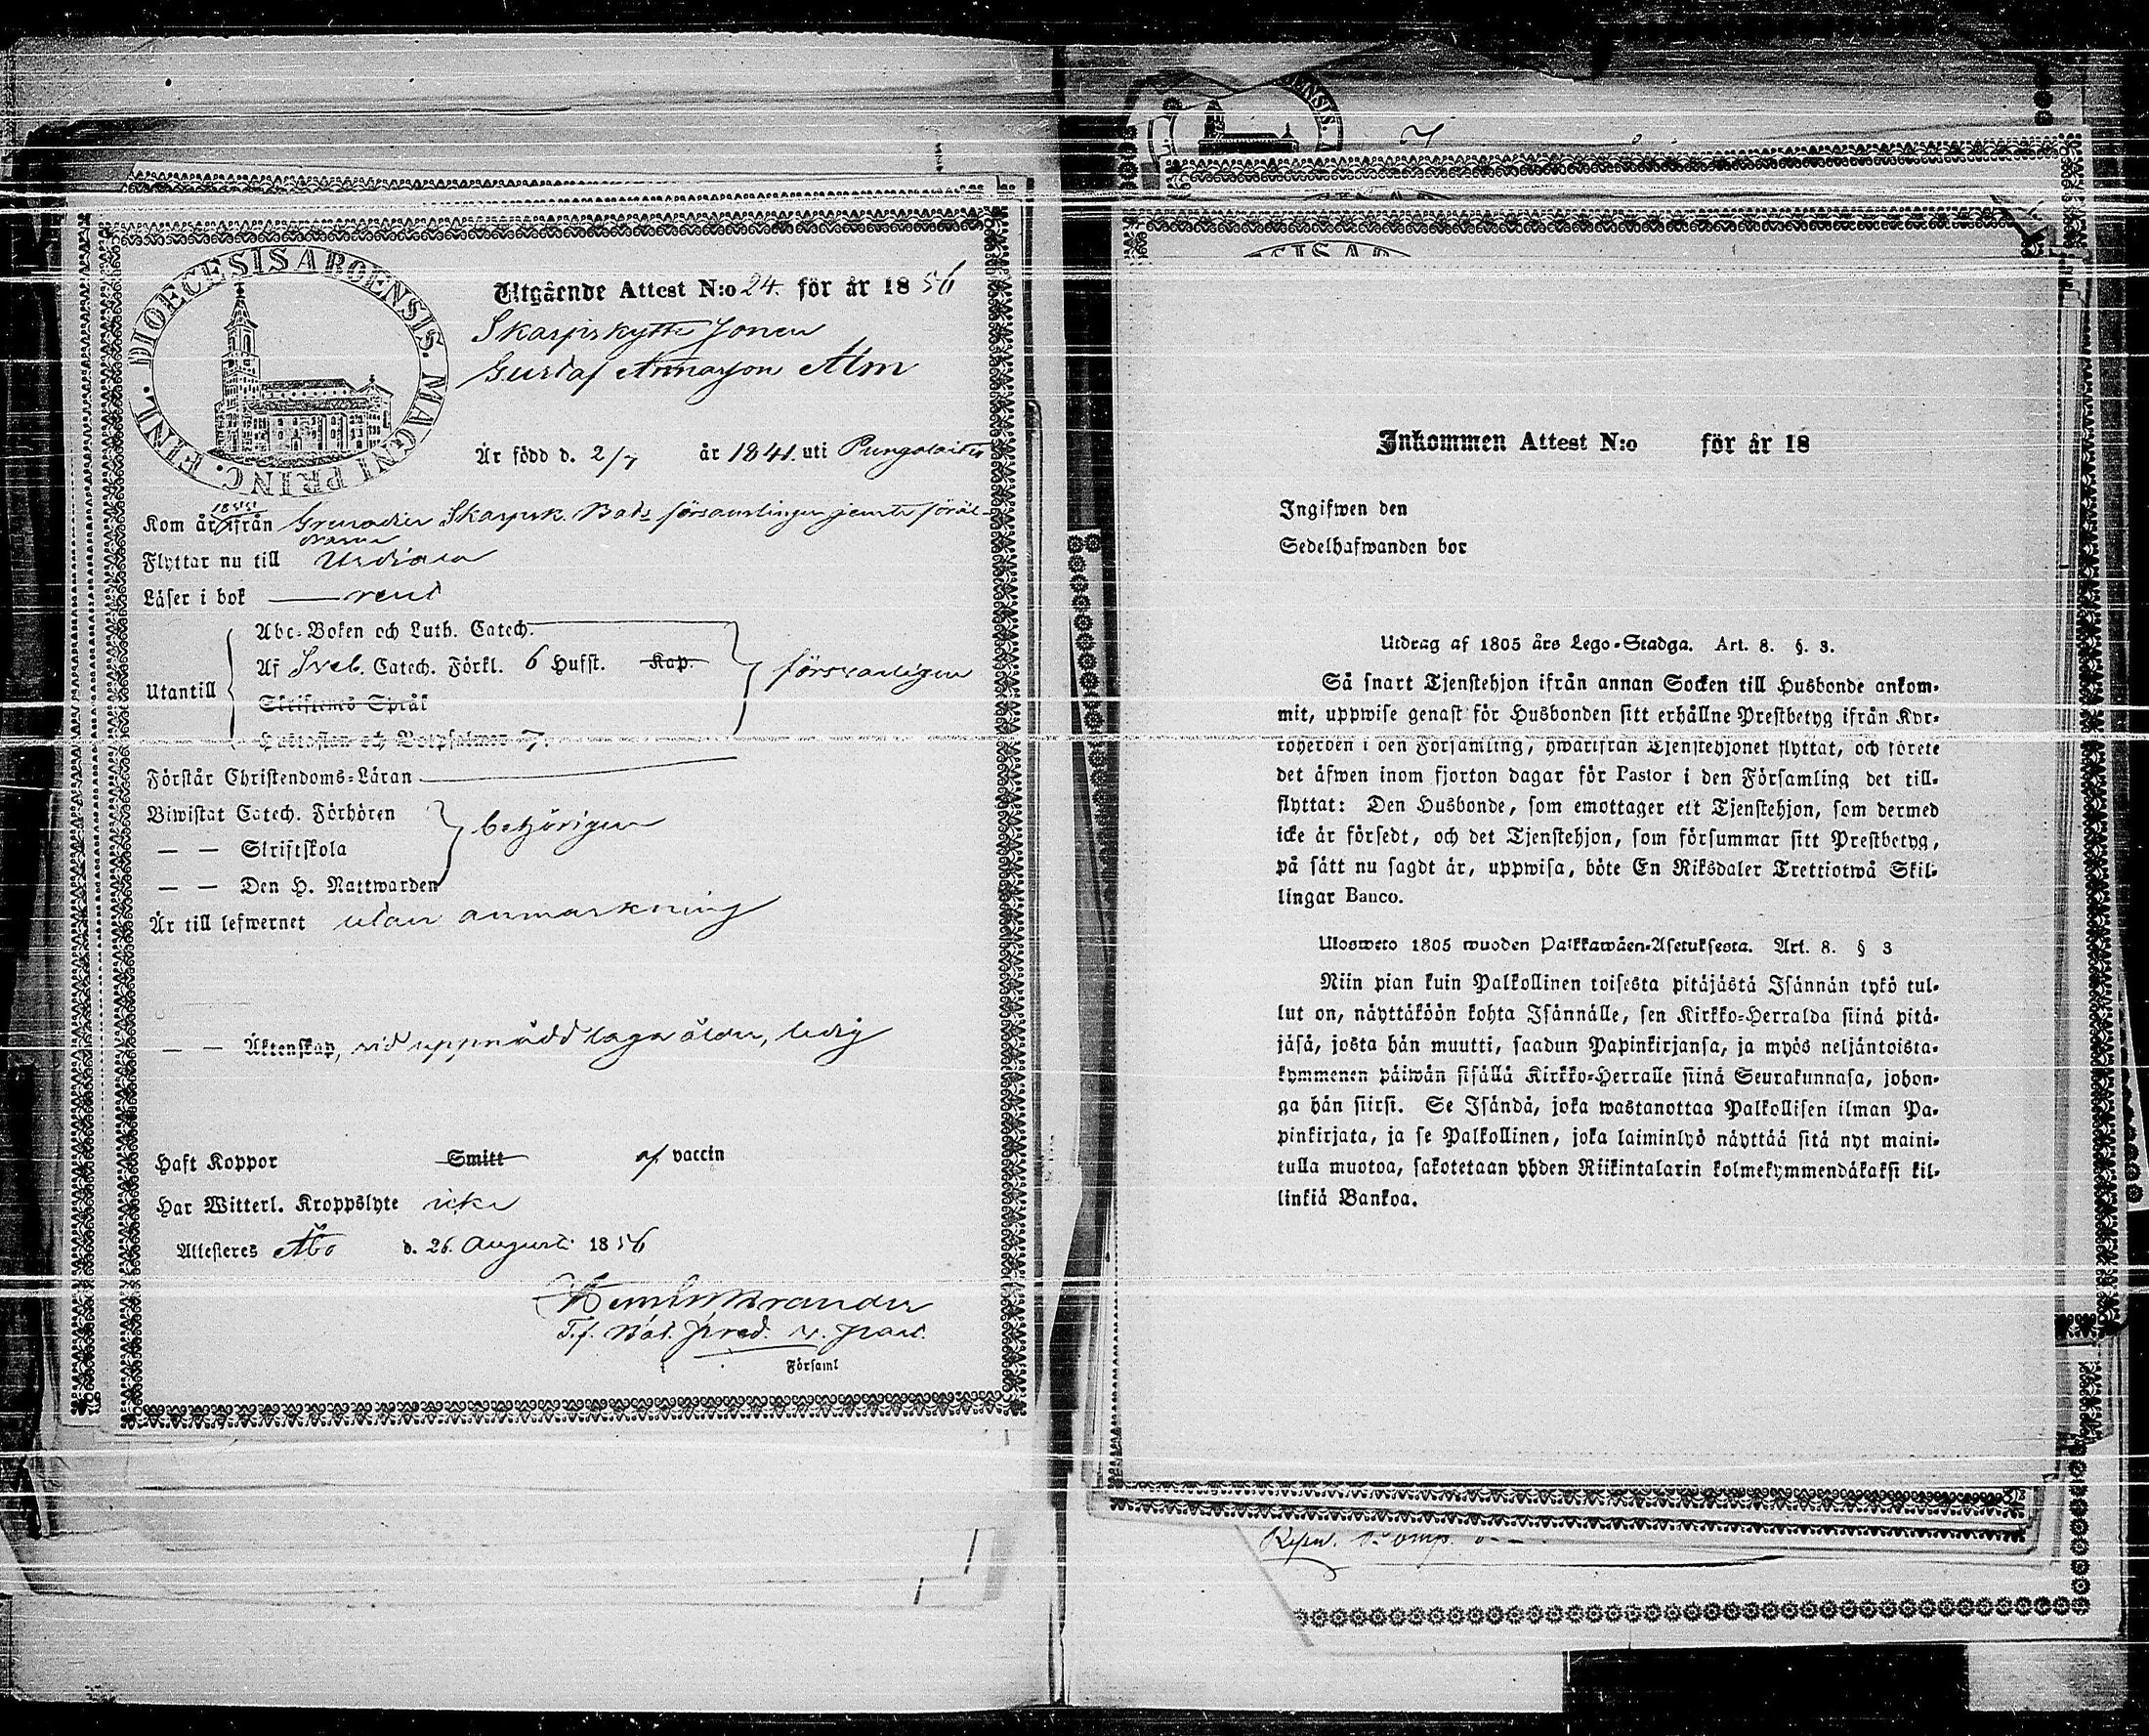 DIOECESIS ABOENSIS. MAGNI PRINC. FINL.
Utgående Attest N:o 24. för år 1856
Skarpskytte Sonen
Gustaf Annasson Alm
Är född d. 2/7 år 1841. uti Pungalaitio
1855
Kom år ifrån Grenadier Skarpsk. Bats församlingen jemte föräl-
drarne
Flyttar nu till Urdiala
Läser i bok — rent
Abc-Boken och Luth. Catech.
Af Sveb. Catech. Förkl. 6 Hufst. Kap.
Utantill
försvarligen
Skriftenes Språk
Hustaflan och Botpsalmer 7.
Förstår Christendoms-Läran
Biwistat Catech. Förhören
behörigen
— — Skriftskola
— — Den H. Nattwarden
Är till lefwernet utan anmärkning
— — Äktenskap, vid uppnådd laga ålder, ledig
Haft Koppor Smitt af vaccin
Har Witterl. Kroppslyte icke
Attesteres Åbo d. 26. Augusti 1856
T.f. Bat. pred. v. past.
Församl
ENSIS.
ESIS AB
Inkommen Attest N:o för år 18
Ingifwen den
Sedelhafwanden bor
Utdrag af 1805 års Lego-Stadga. Art. 8. §. 3.
Så snart Tjenstehjon ifrån annan Socken till Husbonde ankom-
mit, uppwise genast för Husbonden sitt erhållne Prestbetyg ifrån Kyr-
koherden i den Församling, hwarifrån Tjenstehjonet flyttat, och förete
det äfwen inom fjorton dagar för Pastor i den Församling det till-
flyttat: Den Husbonde, som emottager ett Tjenstehjon, som dermed
icke är försedt, och det Tjenstehjon, som försummar sitt Prestbetyg,
på sätt nu sagdt är, uppwisa, böte En Riksdaler Trettiotwå Skil-
lingar Banco.
Ulosweto 1805 wuoden Palkkawäen-Asetuksesta. Art. 8. § 3
Niin pian kuin Palkollinen toisesta pitäjästä Isännän tykö tul-
lut on, näyttäköön kohta Isännälle, sen Kirkko-Herralda siinä pitä-
jäsä, josta hän muutti, saadun Papinkirjansa, ja myös neljäntoista-
kymmenen päiwän sisällä Kirkko-Herralle siinä Seurakunnasa, johon-
ga hän siirsi. Se Isändä, joka wastanottaa Palkollisen ilman Pa-
pinkirjata, ja se Palkollinen, joka laiminlyö näyttää sitä nyt maini-
tulla muotoa, sakotetaan yhden Riikintalarin kolmekymmendäkaksi kil-
linkiä Bankoa.